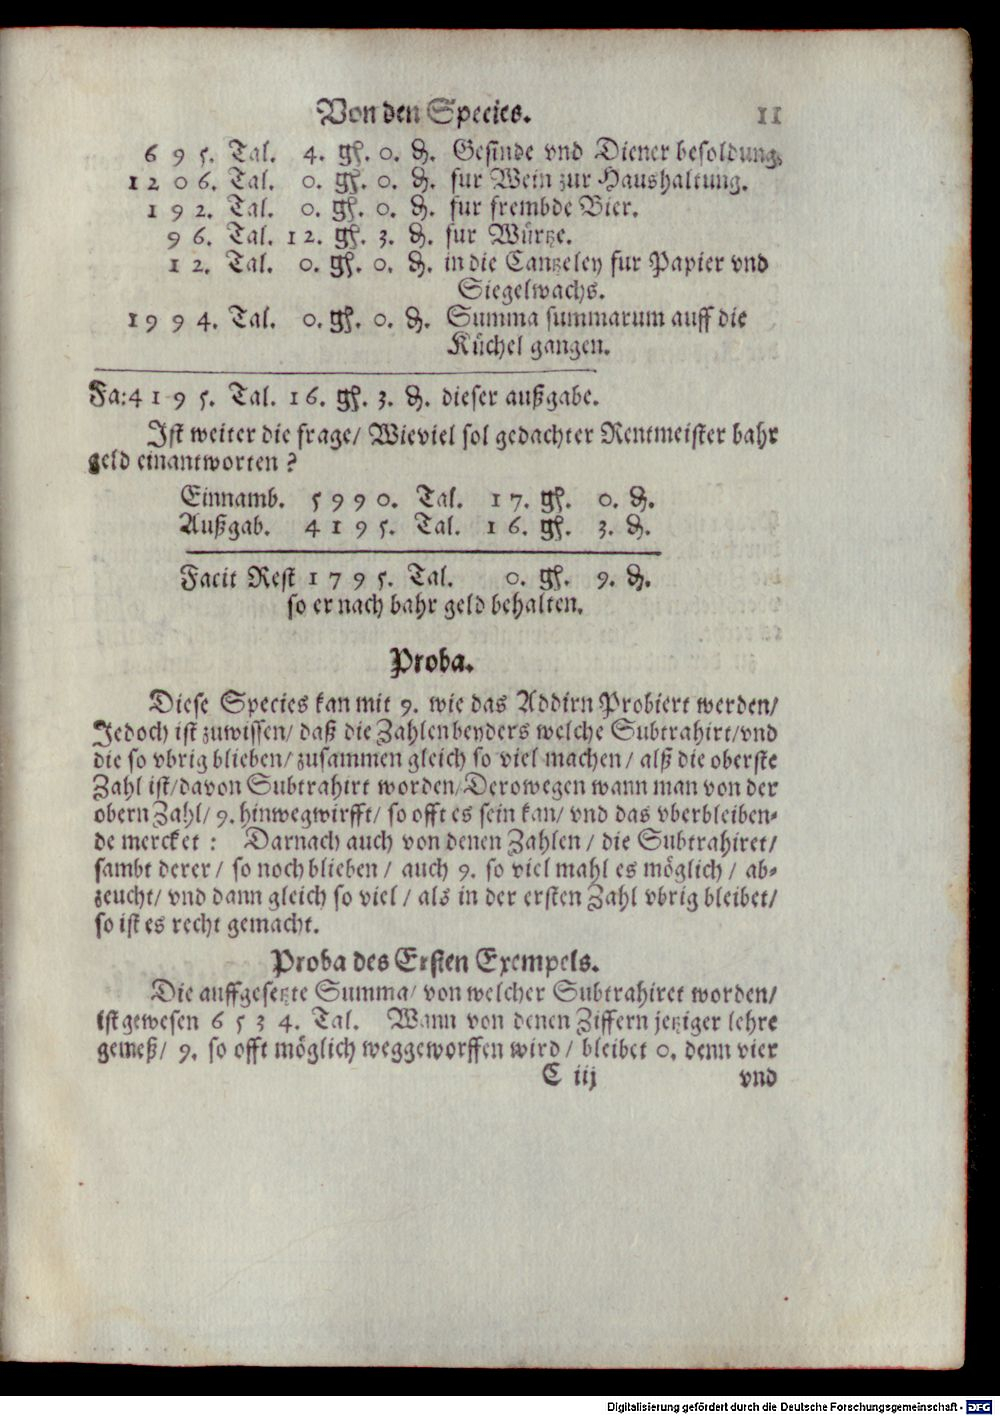 Von den Species. 11
6 9 5. Tal. 4. gℓ. 0. ₰. Gesinde vnd Diener besoldung.
1 2 0 6. Tal. 0. gℓ. 0. ₰. fur Wein zur Haushaltung.
1 9 2. Tal. 0. gℓ. 0. ₰. fur frembde Bier.
9 6. Tal. 12. gℓ. 3. ₰. fur Würtze.
1 2. Tal. 0. gℓ. 0. ₰. in die Cantzeley fur Papier vnd
Siegelwachs.
1 9 9 4. Tal. 0. gℓ. 0. ₰. Summa summarum auff die
Küchel gangen.
Fa:4 1 9 5. Tal. 1 6. gℓ. 3. ₰. dieser außgabe.
Ist weiter die frage/ Wieviel sol gedachter Rentmeister bahr
geld einantworten ?
Einnamb. 5 9 9 0. Tal. 1 7. gℓ. 0. ₰.
Außgab. 4 1 9 5. Tal. 1 6. gℓ. 3. ₰.
Facit Rest 1 7 9 5. Tal. 0. gℓ. 9. ₰.
so er nach bahr geld behalten.
Proba.
Diese Species kan mit 9. wie das Addirn Probiert werden/
Jedoch ist zuwissen/ daß die Zahlen beyders welche Subtrahirt/ vnd
die so vbrig blieben/ zusammen gleich so viel machen/ alß die oberste
Zahl ist/ davon Subtrahirt worden/ Derowegen wann man von der
obern Zahl/ 9. hinwegwirfft/ so offt es sein kan/ vnd das vberbleiben-
de mercket : Darnach auch von denen Zahlen / die Subtrahiret/
sambt derer/ so noch blieben / auch 9. so viel mahl es möglich / ab-
zeucht/ vnd dann gleich so viel / als in der ersten Zahl vbrig bleibet/
so ist es recht gemacht.
Proba des Ersten Exempels.
Die auffgesetzte Summa/ von welcher Subtrahiret worden/
ist gewesen 6 5 3 4. Tal. Wann von denen Ziffern jetziger lehre
gemeß/ 9. so offt möglich weggeworffen wird / bleibet 0. denn vier
C iij vnd
Digitalisierung gefördert durch die Deutsche Forschungsgemeinschaft - DFG